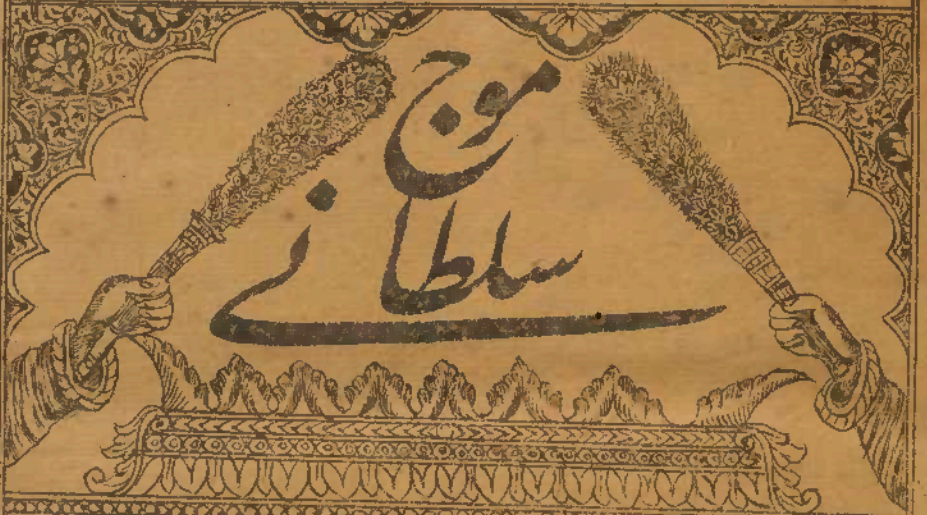 موج
سلطانے